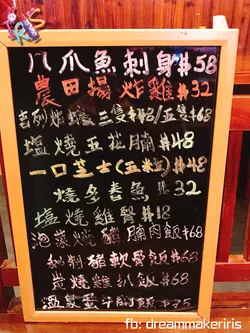 八爪魚刺身#58
農田場炸雞#32
吉列炸蠔三隻#48/五隻#68
塩燒五花腩#48
一口芝士(五粒)#48
燒多春魚#32
塩燒雞腎#18
豬腩肉飯#68
秘制豬軟骨飯#68
炭燒雞扒飯#68
溫泉蛋牛丼飯#75
fb: dreammakeriris